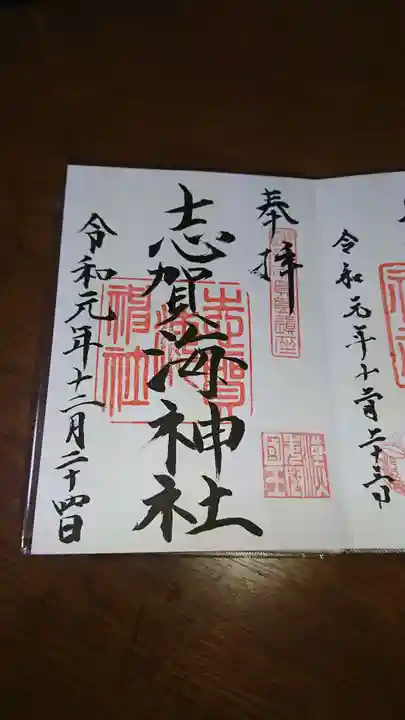 令和元年十二月二十三日
奉拝
漢委奴國王
志賀海神社
志賀海神社
令和元年十二月二十四日